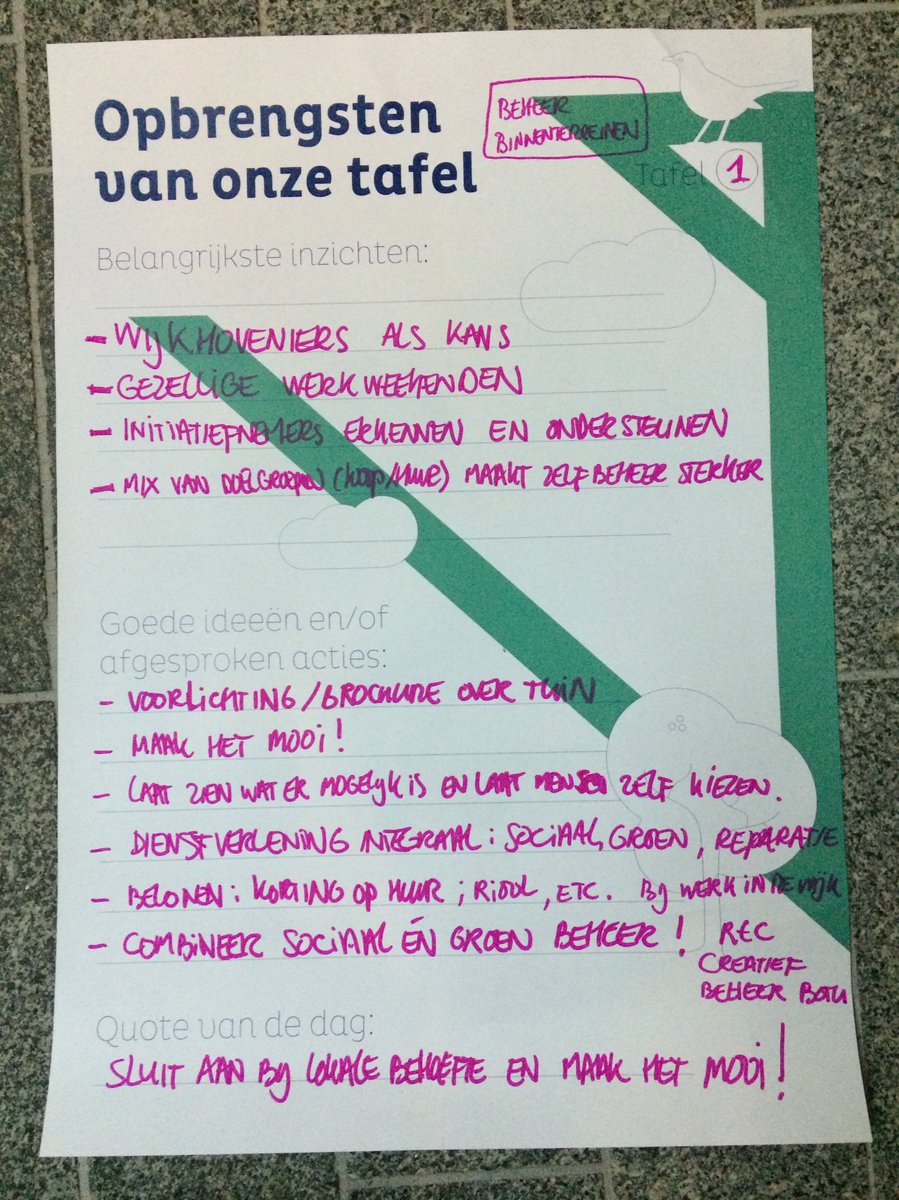 Opbrengsten
van onze tafel
BEHEER
BINNENTERREINEN
Tafel 1
Belangrijkste inzichten:
- WIJKHOVENIERS ALS KANS
- GEZELLIGE WERKWEEKENDEN
- INITIATIEFNEMERS ERKENNEN EN ONDERSTEUNEN
- MIX VAN DOELGROEPEN (koop/HUUR) MAAKT ZELFBEHEER STERKER
Goede ideeën en/of
afgesproken acties:
- VOORLICHTING/BROCHURE OVER TUIN
- MAAK HET MOOI!
- LAAT ZIEN WAT ER MOGELIJK IS EN LAAT MENSEN ZELF KIEZEN.
- DIENSTVERLENING INTEGRAAL: SOCIAAL, GROEN, REPARATIE
- BELONEN: KORTING OP HUUR; RIOOL, ETC. BIJ WERK IN DE WIJK
- COMBINEER SOCIAAL ÉN GROEN BEHEER!
CREATIEF
BEHEER
Quote van de dag:
SLUIT AAN BIJ LOKALE BEHOEFTE EN MAAK HET MOOI!